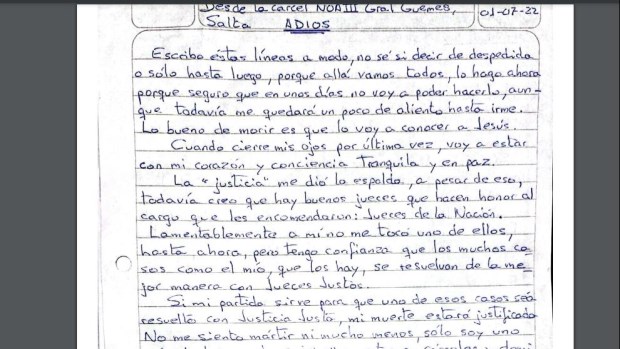 Desde la carcel NOA III Gral Guemes,
Salta ADIOS
01-07-22
Escribo estas líneas a modo, no sé si decir de despedida
o solo hasta luego, porque allá vamos todos, lo hago ahora
porque seguro que en unos días no voy a poder hacerlo, aun-
que todavía me quedará un poco de aliento hasta irme.
Lo bueno de morir es que lo voy a conocer a Jesús.
Cuando cierre mis ojos por última vez, voy a estar
con mi corazón y conciencia tranquila y en paz.
La "justicia" me dió la espalda, a pesar de eso,
todavía creo que hay buenos jueces que hacen honor al
cargo que les encomendaron: Jueces de la Nación.
Lamentablemente a mi no me tocó uno de ellos,
hasta ahora, pero tengo confianza que los muchos ca-
sos como el mío, que los hay, se resuelvan de la me-
jor manera con Jueces Justos.
Si mi partida sirve para que uno de esos casos sea
resuelto con Justicia Justa, mi muerte estará justificada
No me siento mártir ni mucho menos, solo soy uno